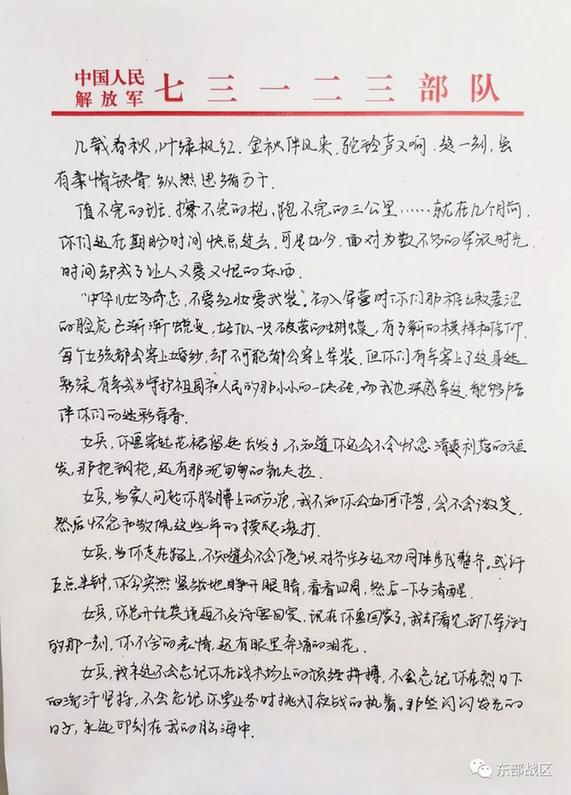 中国人民
解放军
七三一二三部队
几载春秋，叶绿枫红。金秋伴风来，驼铃声又响。这一刻，虽
有柔情铁骨，纵然思绪万千。
值不完的班，擦不完的枪，跑不完的三公里……就在几个月前，
你们还在期盼时间快点过去，可是如今，面对为数不多的军旅时光，
时间却成了让人又爱又恨的东西。
“中华儿女多奇志，不爱红妆爱武装”。初入军营时你们那稚嫩羞涩
的脸庞已渐渐蜕变，好似一只破茧的蝴蝶，有了新的模样和信仰。
每个女孩都会穿上婚纱，却不可能都会穿上军装，但你们有幸穿上了这身迷
彩绿，有幸成为守护祖国和人民的那小小的一块砖，而我也深感幸运，能够陪
伴你们的迷彩青春。
女兵，你要穿起花裙留起长发了，不知道你还会不会怀念清爽利落的短
发，那把钢枪，还有那沉甸甸的凯夫拉。
女兵，当家人问起你胳膊上的伤痕，我不知你会如何作答，会不会微笑，
然后怀念和敬佩这些年的摸爬滚打。
女兵，当你走在路上，不知道会不会下意识对齐步子还劝同伴步伐整齐。或许
五点半钟，你会突然紧张地睁开眼睛，看看四周，然后一下子清醒。
女兵，你总开玩笑说迫不及待要回家，现在你要回家了，我却看见卸下军衔
的那一刻，你不舍的表情，还有眼里奔涌的泪花。
女兵，我永远不会忘记你在战术场上的顽强拼搏，不会忘记你在烈日下
的流汗坚持，不会忘记你学业务时挑灯夜战的执着。那些闪闪发光的
日子，永远印刻在我的脑海中。
东部战区